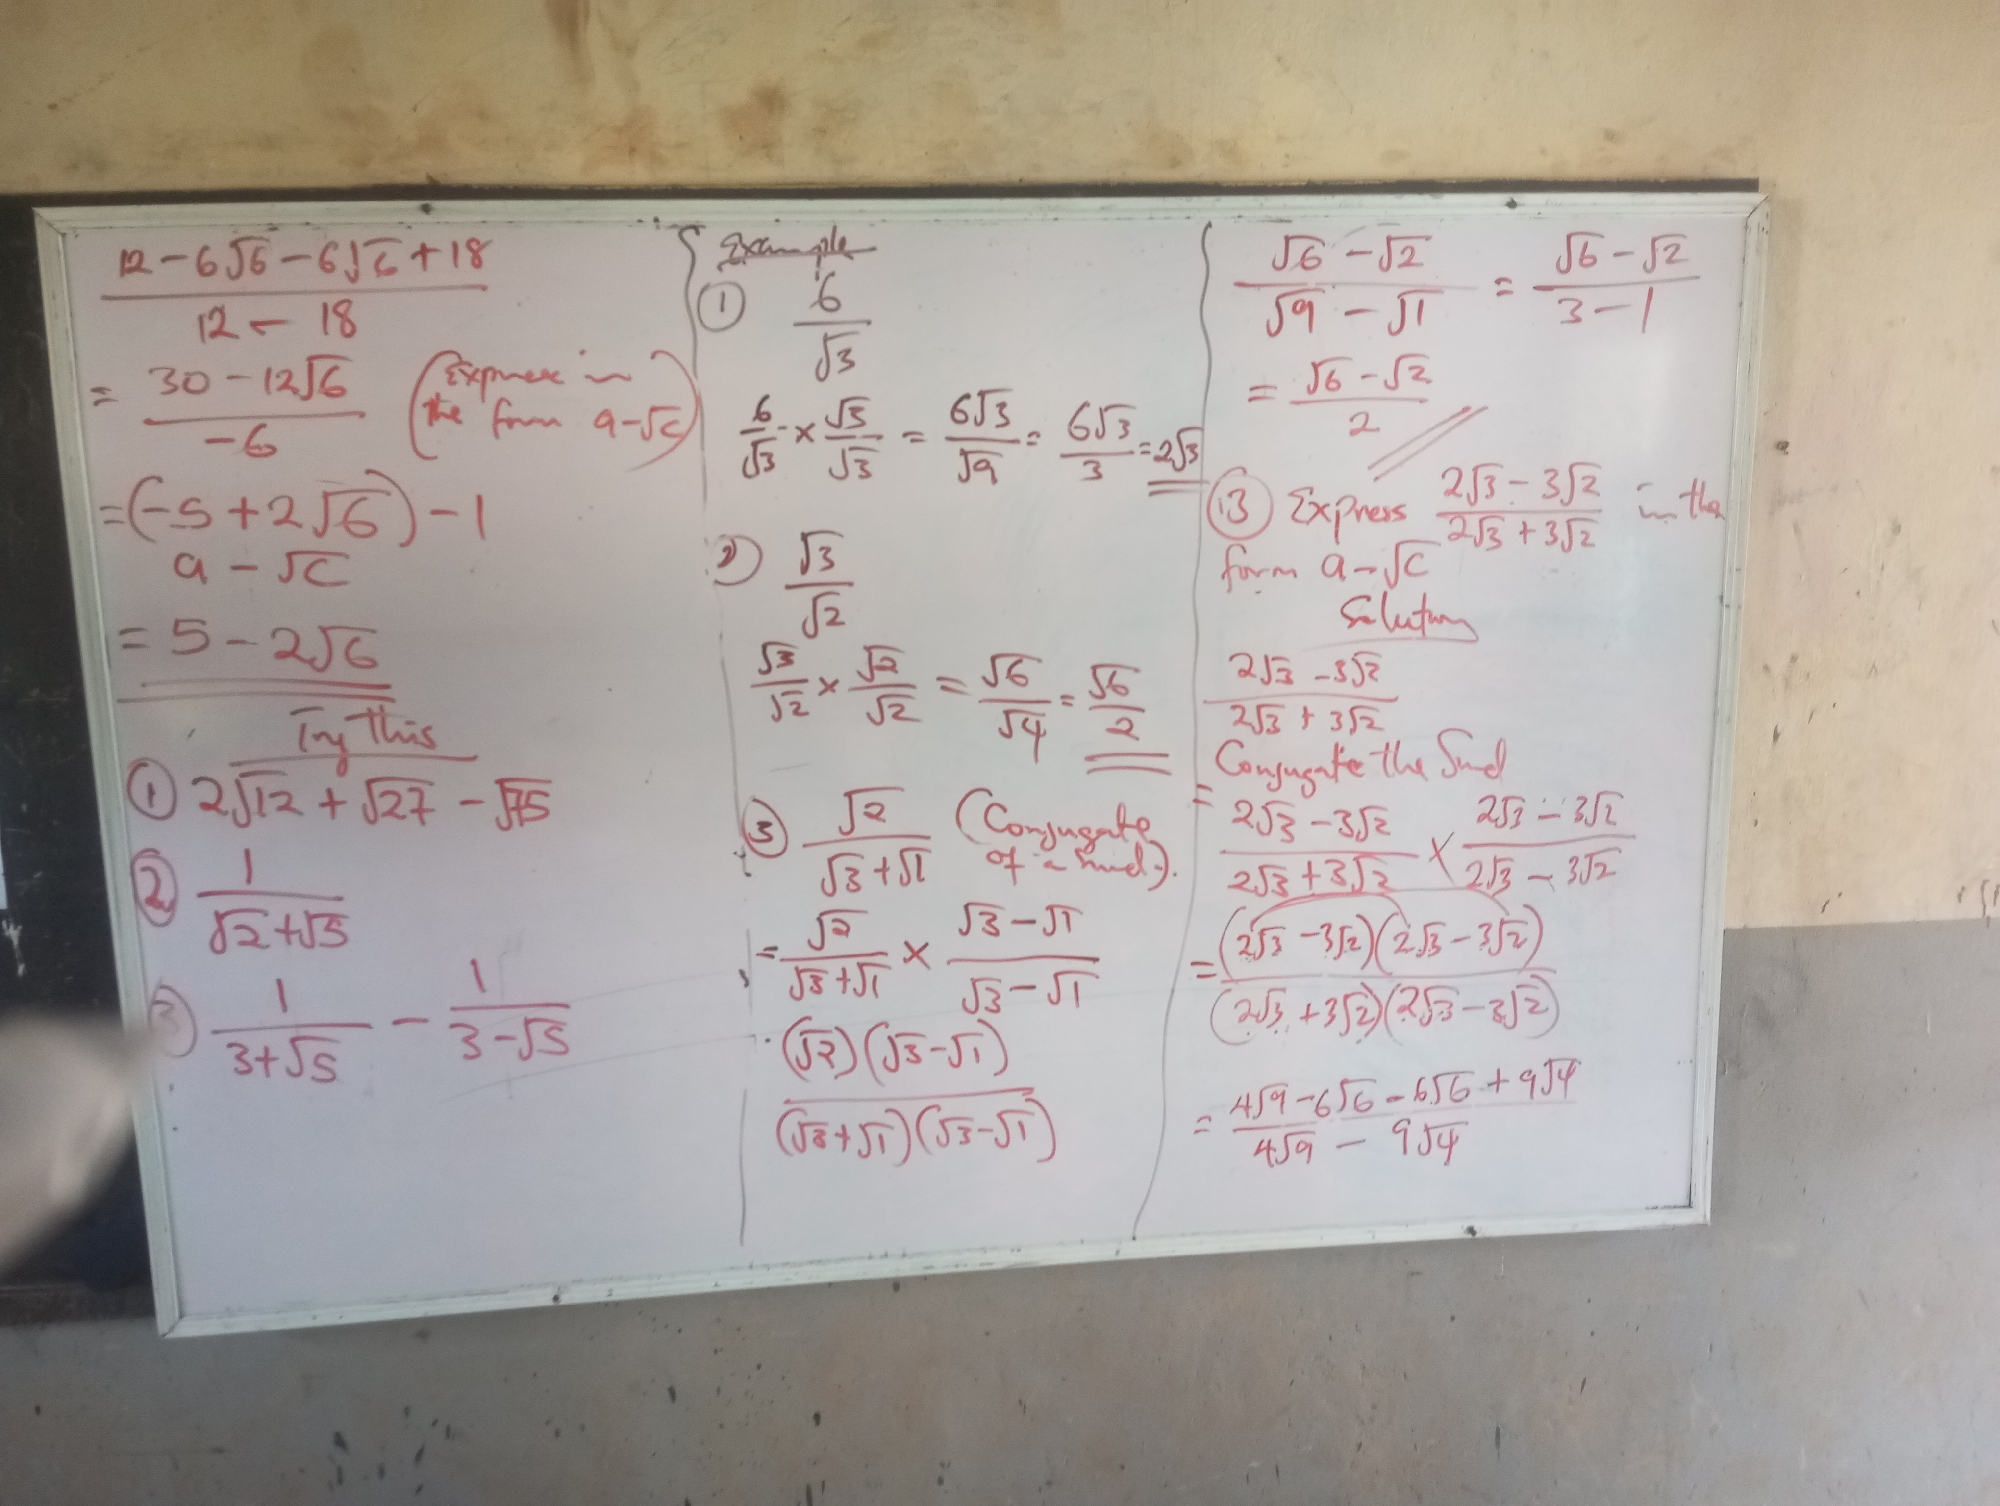 12 - 6√6 - 6√6 + 18 / 12 - 18
= 30 - 12√6 / -6 (Express in the form a - √c)
= (-5 + 2√6) - 1
a - √c
= 5 - 2√6
Try this
① 2√12 + √27 - √75
② 1 / √2 + √5
③ 1 / 3 + √5 - 1 / 3 - √5
Example
① 6 / √3
6/√3 × √3/√3 = 6√3/√9 = 6√3/3 = 2√3
2) √3 / √2
√3/√2 × √2/√2 = √6/√4 = √6/2
③ √2 / √3 + √1 (Conjugate of a surd).
= √2 / √3 + √1 × √3 - √1 / √3 - √1
(√2)(√3 - √1) / (√3 + √1)(√3 - √1)
√6 - √2 / √9 - √1 = √6 - √2 / 3 - 1
= √6 - √2 / 2
13 Express 2√3 - 3√2 / 2√3 + 3√2 in the
form a - √c
Solution
2√3 - 3√2 / 2√3 + 3√2
Conjugate the Surd
= 2√3 - 3√2 / 2√3 + 3√2 × 2√3 - 3√2 / 2√3 - 3√2
= (2√3 - 3√2)(2√3 - 3√2) / (2√3 + 3√2)(2√3 - 3√2)
= 4√9 - 6√6 - 6√6 + 9√4 / 4√9 - 9√4